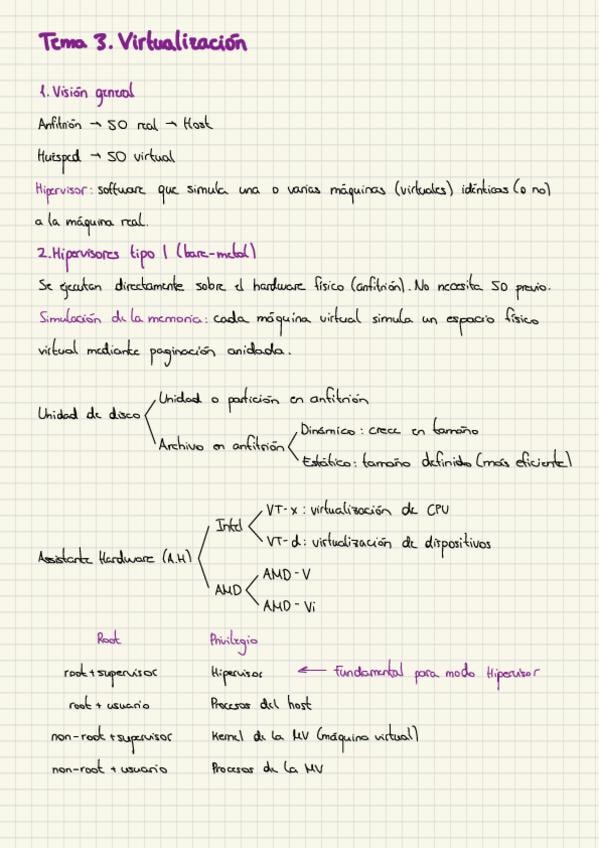 Tema 3. Virtualización
1. Visión general
Anfitrión → SO real → Host
Huésped → SO virtual
Hipervisor: software que simula una o varias máquinas (virtuales) idénticas (o no)
a la máquina real.
2. Hipervisores tipo 1 (bare-metal)
Se ejecutan directamente sobre el hardware físico (anfitrión). No necesita SO previo.
Simulación de la memoria: cada máquina virtual simula un espacio físico
virtual mediante paginación anidada.
Unidad o partición en anfitrión
Unidad de disco
Dinámico: crece en tamaño
Archivo en anfitrión
Estático: tamaño definido (más eficiente)
VT-x: virtualización de CPU
Intel
VT-d: virtualización de dispositivos
Assistante Hardware (A.H)
AMD-V
AMD
AMD-Vi
Root Privilegio
root+supervisor Hipervisor ← Fundamental para modo Hipervisor
root + usuario Procesos del host
non-root + supervisor Kernel de la MV (máquina virtual)
non-root + usuario Procesos de la MV